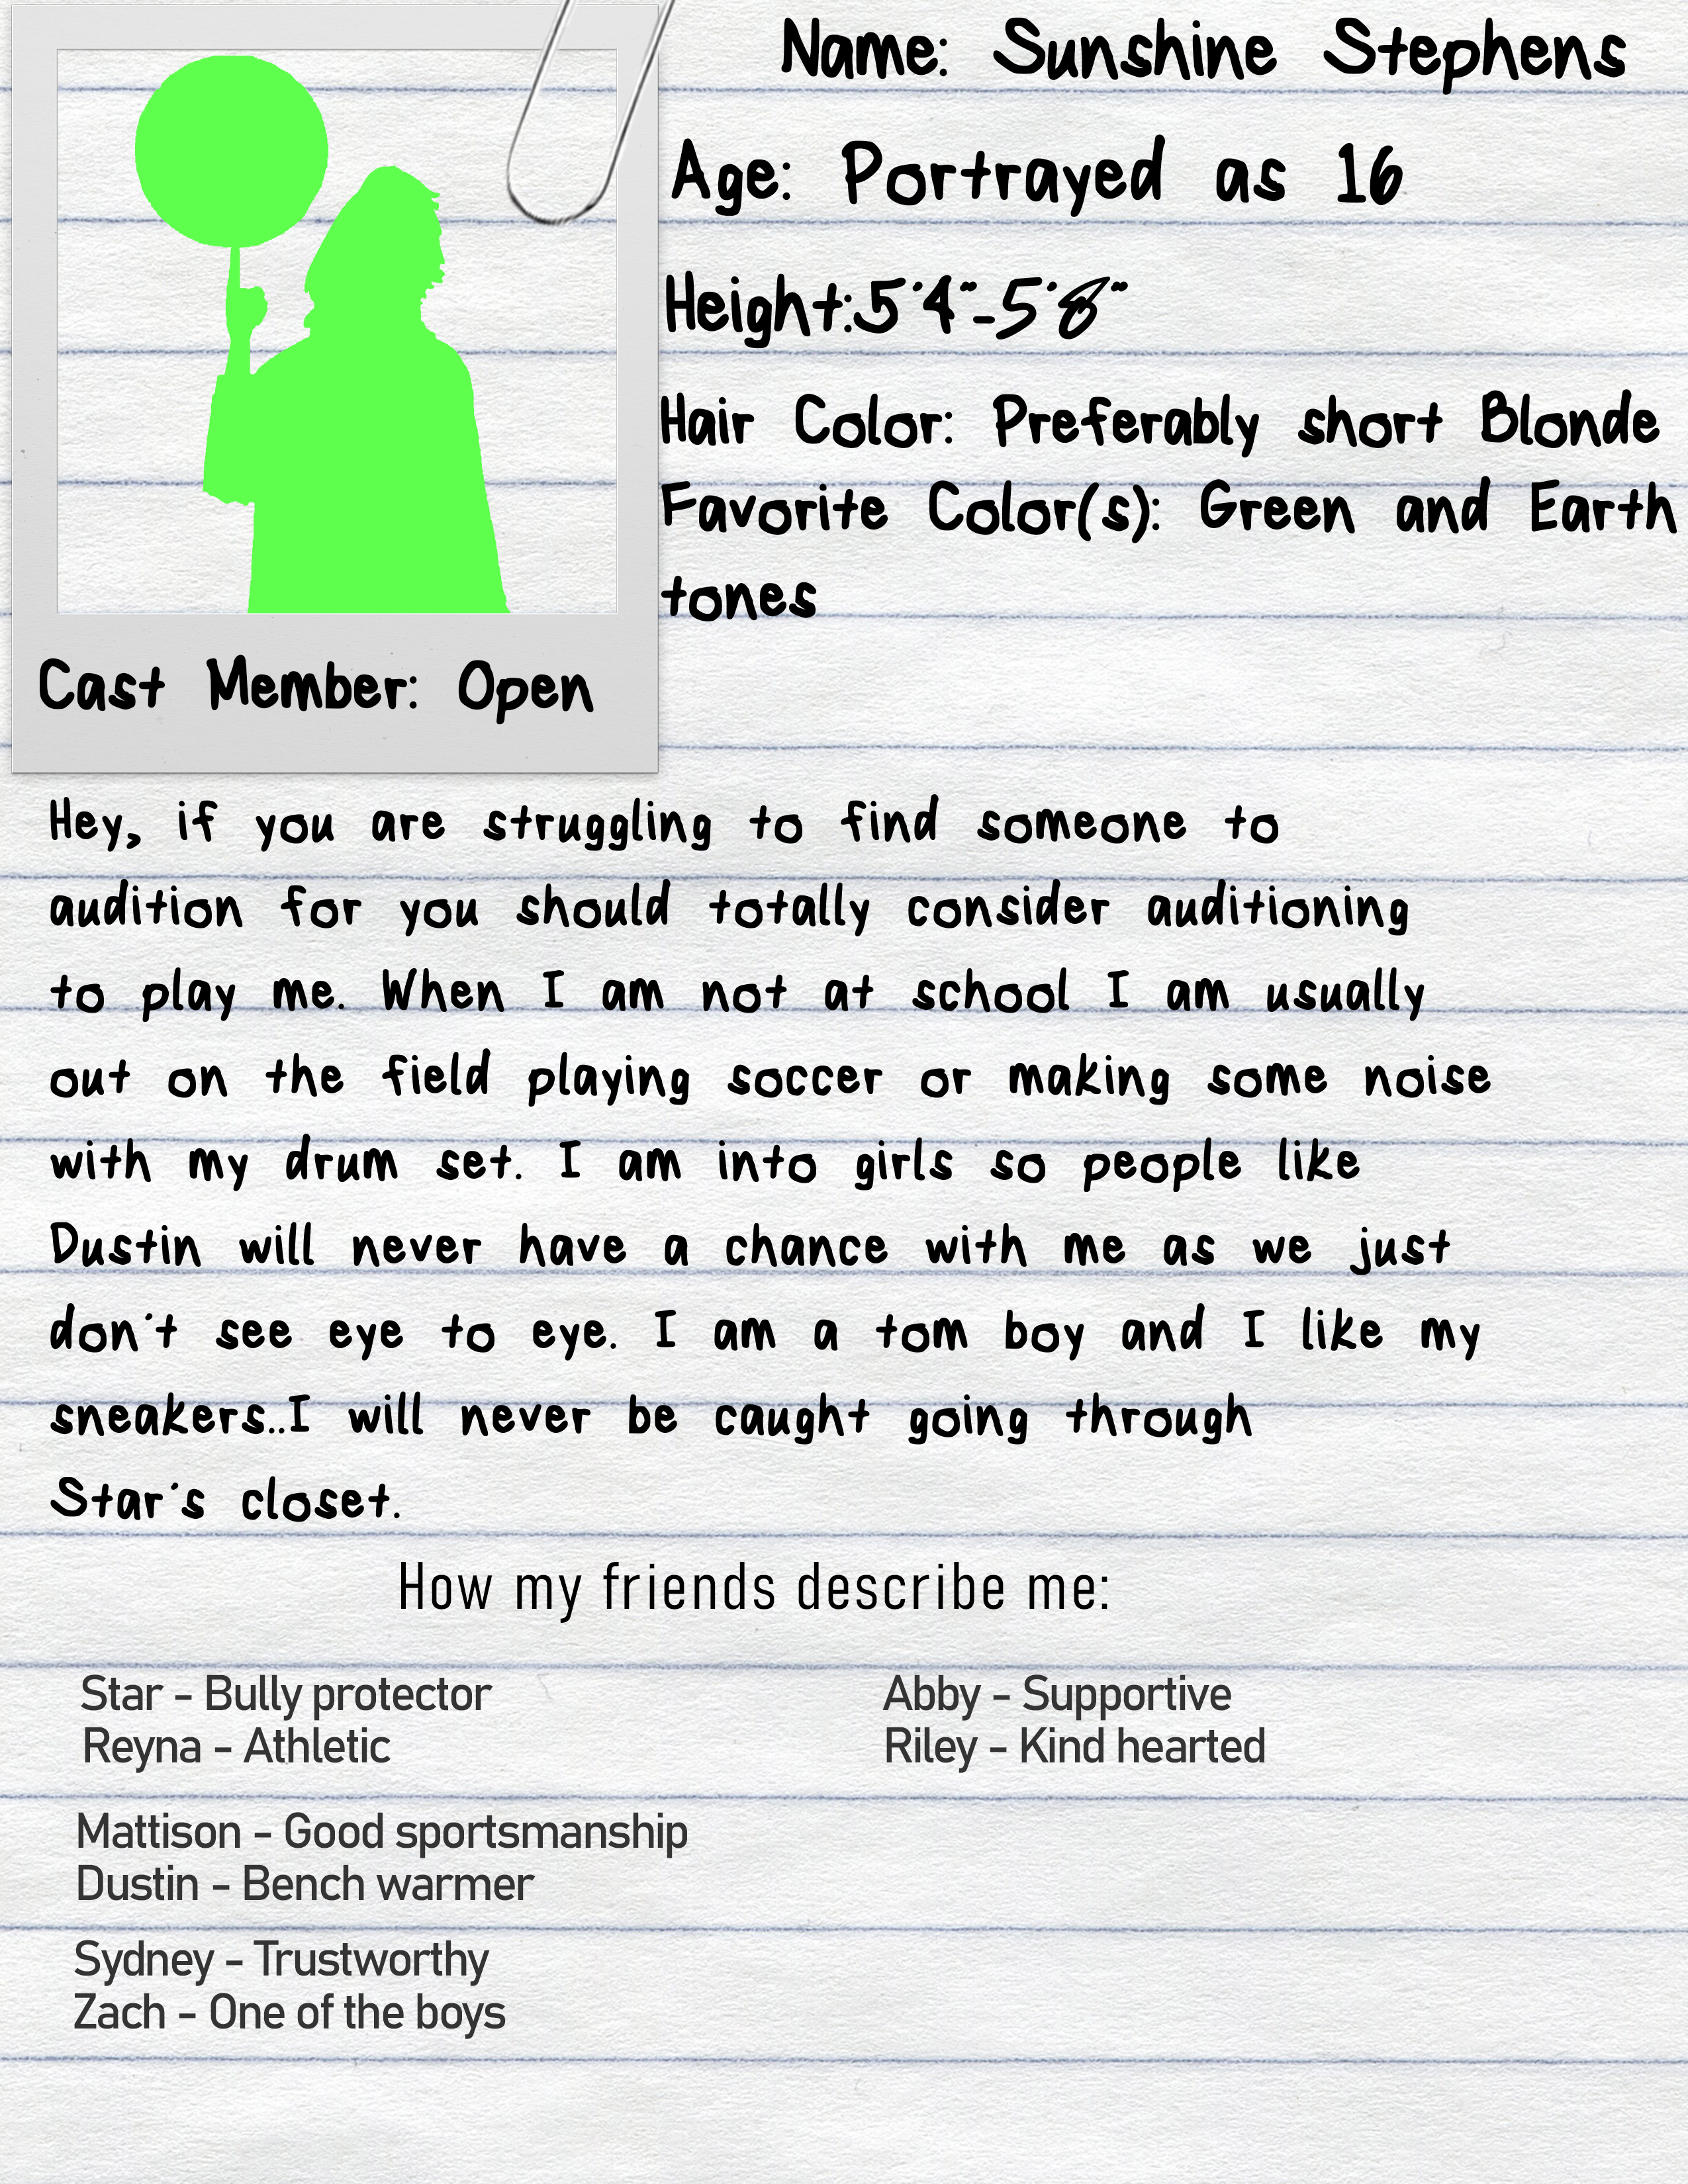 Name: Sunshine Stephens
Age: Portrayed as 16
Height:5'4"-5'8"
Hair Color: Preferably short Blonde
Favorite Color(s): Green and Earth
tones
Cast Member: Open
Hey, if you are struggling to find someone to
audition for you should totally consider auditioning
to play me. When I am not at school I am usually
out on the field playing soccer or making some noise
with my drum set. I am into girls so people like
Dustin will never have a chance with me as we just
don't see eye to eye. I am a tom boy and I like my
sneakers..I will never be caught going through
Star's closet.
How my friends describe me:
Star - Bully protector
Reyna - Athletic
Mattison - Good sportsmanship
Dustin - Bench warmer
Sydney - Trustworthy
Zach - One of the boys
Abby - Supportive
Riley - Kind hearted